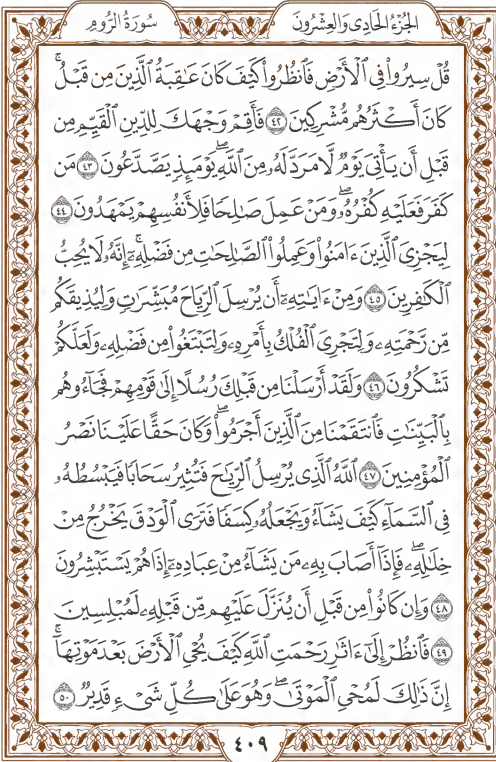 الجُزْءُ الحَادِي وَالعِشْرُونَ
سُورَةُ الرُّومِ
قُلْ سِيرُوا۟ فِى ٱلْأَرْضِ فَٱنظُرُوا۟ كَيْفَ كَانَ عَـٰقِبَةُ ٱلَّذِينَ مِن قَبْلُ ۚ
كَانَ أَكْثَرُهُم مُّشْرِكِينَ ٤٢ فَأَقِمْ وَجْهَكَ لِلدِّينِ ٱلْقَيِّمِ مِن
قَبْلِ أَن يَأْتِىَ يَوْمٌ لَّا مَرَدَّ لَهُۥ مِنَ ٱللَّهِ ۖ يَوْمَئِذٍ يَصَّدَّعُونَ ٤٣ مَن
كَفَرَ فَعَلَيْهِ كُفْرُهُۥ ۖ وَمَنْ عَمِلَ صَـٰلِحًا فَلِأَنفُسِهِمْ يَمْهَدُونَ ٤٤
لِيَجْزِىَ ٱلَّذِينَ ءَامَنُوا۟ وَعَمِلُوا۟ ٱلصَّـٰلِحَـٰتِ مِن فَضْلِهِۦٓ ۚ إِنَّهُۥ لَا يُحِبُّ
ٱلْكَـٰفِرِينَ ٤٥ وَمِنْ ءَايَـٰتِهِۦٓ أَن يُرْسِلَ ٱلرِّيَاحَ مُبَشِّرَٰتٍ وَلِيُذِيقَكُم
مِّن رَّحْمَتِهِۦ وَلِتَجْرِىَ ٱلْفُلْكُ بِأَمْرِهِۦ وَلِتَبْتَغُوا۟ مِن فَضْلِهِۦ وَلَعَلَّكُمْ
تَشْكُرُونَ ٤٦ وَلَقَدْ أَرْسَلْنَا مِن قَبْلِكَ رُسُلًا إِلَىٰ قَوْمِهِمْ فَجَآءُوهُم
بِٱلْبَيِّنَـٰتِ فَٱنتَقَمْنَا مِنَ ٱلَّذِينَ أَجْرَمُوا۟ ۖ وَكَانَ حَقًّا عَلَيْنَا نَصْرُ
ٱلْمُؤْمِنِينَ ٤٧ ٱللَّهُ ٱلَّذِى يُرْسِلُ ٱلرِّيَـٰحَ فَتُثِيرُ سَحَابًا فَيَبْسُطُهُۥ
فِى ٱلسَّمَآءِ كَيْفَ يَشَآءُ وَيَجْعَلُهُۥ كِسَفًا فَتَرَى ٱلْوَدْقَ يَخْرُجُ مِنْ
خِلَـٰلِهِۦ ۖ فَإِذَآ أَصَابَ بِهِۦ مَن يَشَآءُ مِنْ عِبَادِهِۦٓ إِذَا هُمْ يَسْتَبْشِرُونَ
٤٨ وَإِن كَانُوا۟ مِن قَبْلِ أَن يُنَزَّلَ عَلَيْهِم مِّن قَبْلِهِۦ لَمُبْلِسِينَ
٤٩ فَٱنظُرْ إِلَىٰٓ ءَاثَـٰرِ رَحْمَتِ ٱللَّهِ كَيْفَ يُحْىِ ٱلْأَرْضَ بَعْدَ مَوْتِهَآ ۚ
إِنَّ ذَٰلِكَ لَمُحْىِ ٱلْمَوْتَىٰ ۖ وَهُوَ عَلَىٰ كُلِّ شَىْءٍ قَدِيرٌ ٥٠
٤٠٩